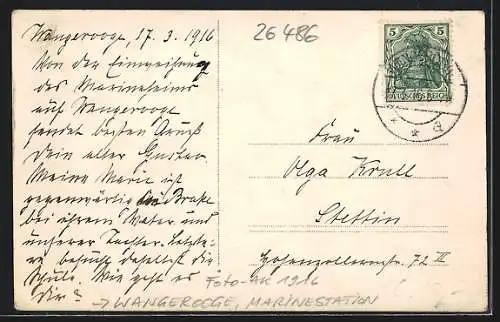 Wangerooge, 17. 3. 1916
Von der Einweihung
des Marineheims
auf Wangerooge
sendet besten Gruß
Dein alter Gustav.
Meine Marie ist
gegenwärtig in Brake
bei ihrem Vater und
unserer Tochter. Letzte-
re besucht daselbst die
Schule. Wie geht es
Dir?
26486
5 5
DEUTSCHES REICH
Frau
Olga Krull
Stettin
Hohenzollernstr. 72 II
Foto-AK 1916
→ WANGEROOGE, MARINESTATION